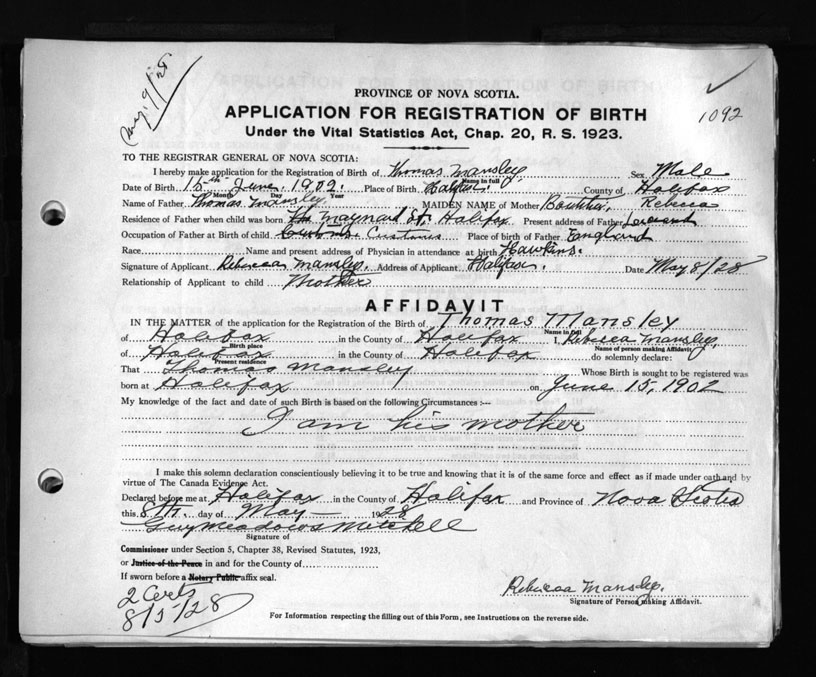 May 9/28
1092
PROVINCE OF NOVA SCOTIA.
APPLICATION FOR REGISTRATION OF BIRTH
Under the Vital Statistics Act, Chap. 20, R. S. 1923.
TO THE REGISTRAR GENERAL OF NOVA SCOTIA:
I hereby make application for the Registration of Birth of Thomas Mansley Sex Male
Name in full
Date of Birth 15th June 1902. Place of Birth Halifax. County of Halifax
Month Day Year
Name of Father Thomas Mansley MAIDEN NAME of Mother Boutilier, Rebecca
Residence of Father when child was born Maynard St. Halifax Present address of Father
Occupation of Father at Birth of child Customs Place of birth of Father England
Race Name and present address of Physician in attendance at birth Hawkins.
Signature of Applicant Rebecca Mansley. Address of Applicant Halifax. Date May 8/28
Relationship of Applicant to child Mother
AFFIDAVIT
IN THE MATTER of the application for the Registration of the Birth of Thomas Mansley
Name in full
of Halifax in the County of Halifax I, Rebecca Mansley
Birth place Name of person making Affidavit
of Halifax in the County of Halifax do solemnly declare:
Present residence
That Thomas Mansley Whose Birth is sought to be registered was
born at Halifax on June 15, 1902
My knowledge of the fact and date of such Birth is based on the following Circumstances:—
I am his mother
I make this solemn declaration conscientiously believing it to be true and knowing that it is of the same force and effect as if made under oath and by
virtue of The Canada Evidence Act.
Declared before me at Halifax in the County of Halifax and Province of Nova Scotia
this 8th. day of May 1928
Guy Meadows Mitchell
Signature of
Commissioner under Section 5, Chapter 38, Revised Statutes, 1923,
or Justice of the Peace in and for the County of
If sworn before a Notary Public affix seal.
Rebecca Mansley.
Signature of Person making Affidavit.
2 Certs
8/5/28
For Information respecting the filling out of this Form, see Instructions on the reverse side.